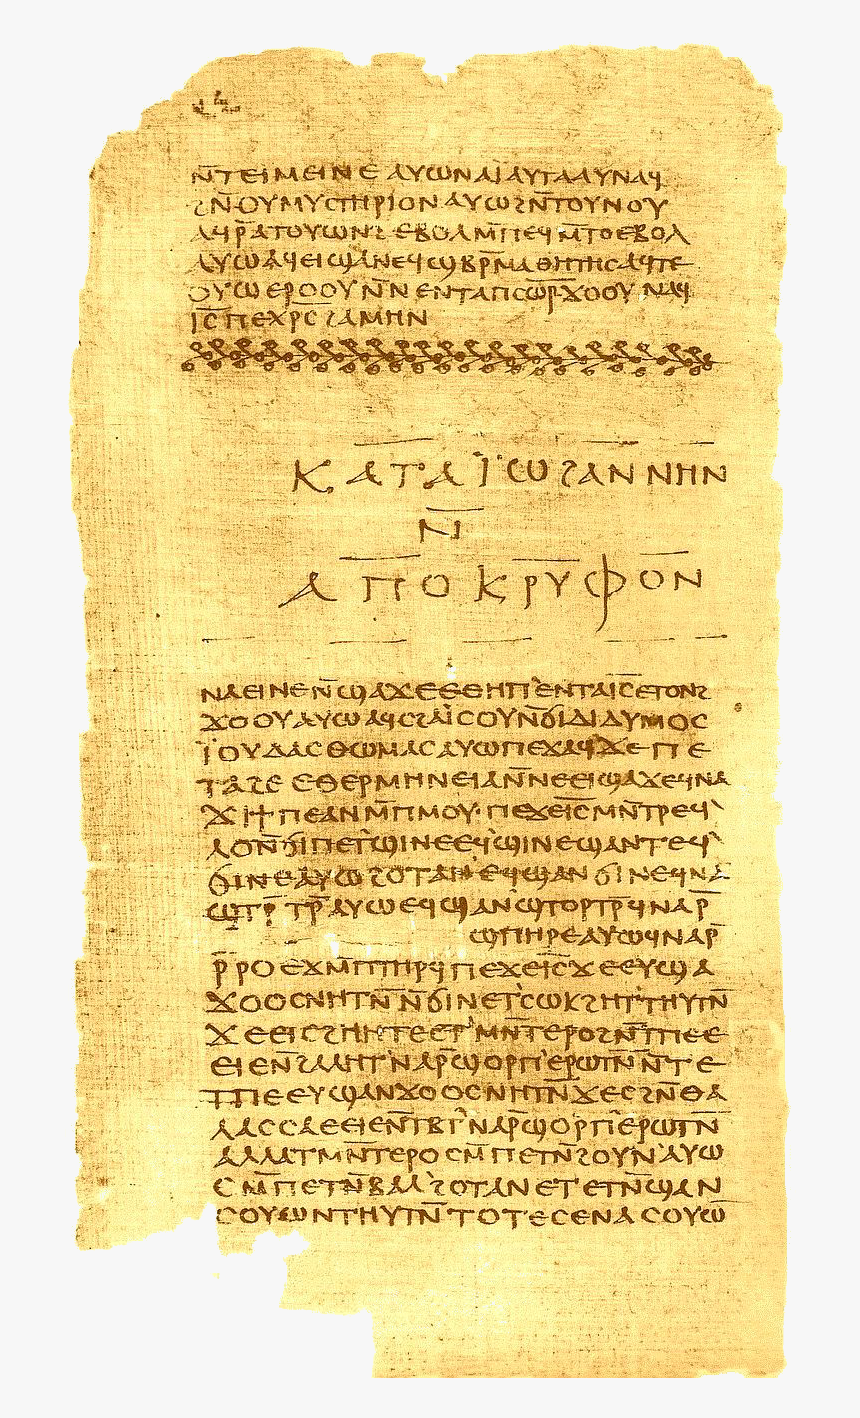 ⲛ̄ⲧⲉⲓⲙⲉⲓⲛⲉ ⲁⲩⲱ ⲛⲁⲓ̈ ⲁⲩⲧⲁⲁⲩ ⲛⲁϥ
ϩⲛ̄ ⲟⲩⲙⲩⲥⲧⲏⲣⲓⲟⲛ ⲁⲩⲱ ϩⲛ̄ ⲧⲟⲩⲛⲟⲩ
ⲁϥⲣ̄ⲁⲧⲟⲩⲱⲛϩ ⲉⲃⲟⲗ ⲙ̄ⲡⲉϥⲙ̄ⲧⲟ ⲉⲃⲟⲗ
ⲁⲩⲱ ⲁϥⲉⲓ ϣⲁ ⲛⲉϥϣⲃⲣ̄ⲙⲁⲑⲏⲧⲏⲥ ⲁϥⲧⲉ
ⲟⲩⲱ ⲉⲣⲟⲟⲩ ⲛ̄ⲛⲉⲛⲧⲁⲡⲥⲱⲣ̄ ϫⲟⲟⲩ ⲛⲁϥ
ⲓ̅ⲥ̅ ⲡⲉⲭⲣ̅ⲥ̅ ϩⲁⲙⲏⲛ
ⲕⲁⲧⲁ ⲓ̈ⲱϩⲁⲛⲛⲏⲛ
ⲛ̄
ⲁⲡⲟⲕⲣⲩⲫⲟⲛ
ⲛⲁⲉⲓ ⲛⲉ ⲛ̄ϣⲁϫⲉ ⲉⲑⲏⲡ ⲉⲛⲧⲁ ⲓ̅ⲥ̅ ⲉⲧⲟⲛϩ
ϫⲟⲟⲩ ⲁⲩⲱ ⲁϥⲥϩⲁⲓ̈ⲥⲟⲩ ⲛ̄ϭⲓ ⲇⲓⲇⲩⲙⲟⲥ
ⲓ̈ⲟⲩⲇⲁⲥ ⲑⲱⲙⲁⲥ ⲁⲩⲱ ⲡⲉϫⲁϥ ϫⲉ ⲡⲉ
ⲧⲁϩⲉ ⲉⲑⲉⲣⲙⲏⲛⲉⲓⲁ ⲛ̄ⲛⲉⲉⲓϣⲁϫⲉ ϥⲛⲁ
ϫⲓ ϯⲡⲉ ⲁⲛ ⲙ̄ⲡⲙⲟⲩ ⲡⲉϫⲉ ⲓ̅ⲥ̅ ⲙⲛ̄ⲧⲣⲉϥ
ⲗⲟ ⲛ̄ϭⲓ ⲡⲉⲧϣⲓⲛⲉ ⲉϥϣⲓⲛⲉ ϣⲁⲛⲧⲉϥ
ϭⲓⲛⲉ ⲁⲩⲱ ϩⲟⲧⲁⲛ ⲉϥϣⲁⲛϭⲓⲛⲉ ϥⲛⲁ
ϣⲧⲣ̄ⲧⲣ̄ ⲁⲩⲱ ⲉϥϣⲁⲛϣⲧⲟⲣⲧⲣ̄ ϥⲛⲁⲣ̄
ϣⲡⲏⲣⲉ ⲁⲩⲱ ϥⲛⲁⲣ̄
ⲣ̄ⲣⲟ ⲉϫⲙ̄ ⲡⲧⲏⲣϥ ⲡⲉϫⲉ ⲓ̅ⲥ̅ ϫⲉ ⲉⲩϣⲁ
ϫⲟⲟⲥ ⲛⲏⲧⲛ̄ ⲛ̄ϭⲓ ⲛⲉⲧⲥⲱⲕ ϩⲏⲧ ⲧⲏⲩⲧⲛ̄
ϫⲉ ⲉⲓⲥϩⲏⲏⲧⲉ ⲉⲧⲙⲛ̄ⲧⲉⲣⲟ ϩⲛ̄ ⲧⲡⲉ ⲉ
ⲉⲓⲉ ⲛ̄ϩⲁⲗⲏⲧ ⲛⲁⲣ̄ ϣⲟⲣⲡ ⲉⲣⲱⲧⲛ̄ ⲛ̄ⲧⲉ
ⲧⲡⲉ ⲉⲩϣⲁⲛϫⲟⲟⲥ ⲛⲏⲧⲛ̄ ϫⲉ ⲥϩⲛ̄ ⲑⲁ
ⲗⲁⲥⲥⲁ ⲉⲉⲓⲉ ⲛ̄ⲧⲃⲧ ⲛⲁⲣ̄ ϣⲟⲣⲡ ⲉⲣⲱⲧⲛ̄
ⲁⲗⲗⲁ ⲧⲙⲛ̄ⲧⲉⲣⲟ ⲥⲙ̄ⲡⲉⲧⲛ̄ϩⲟⲩⲛ ⲁⲩⲱ
ⲥⲙ̄ⲡⲉⲧⲛ̄ⲃⲁⲗ ϩⲟⲧⲁⲛ ⲉⲧⲉⲧⲛ̄ϣⲁⲛ
ⲥⲟⲩⲱⲛ ⲧⲏⲩⲧⲛ̄ ⲧⲟⲧⲉ ⲥⲉⲛⲁⲥⲟⲩⲱ